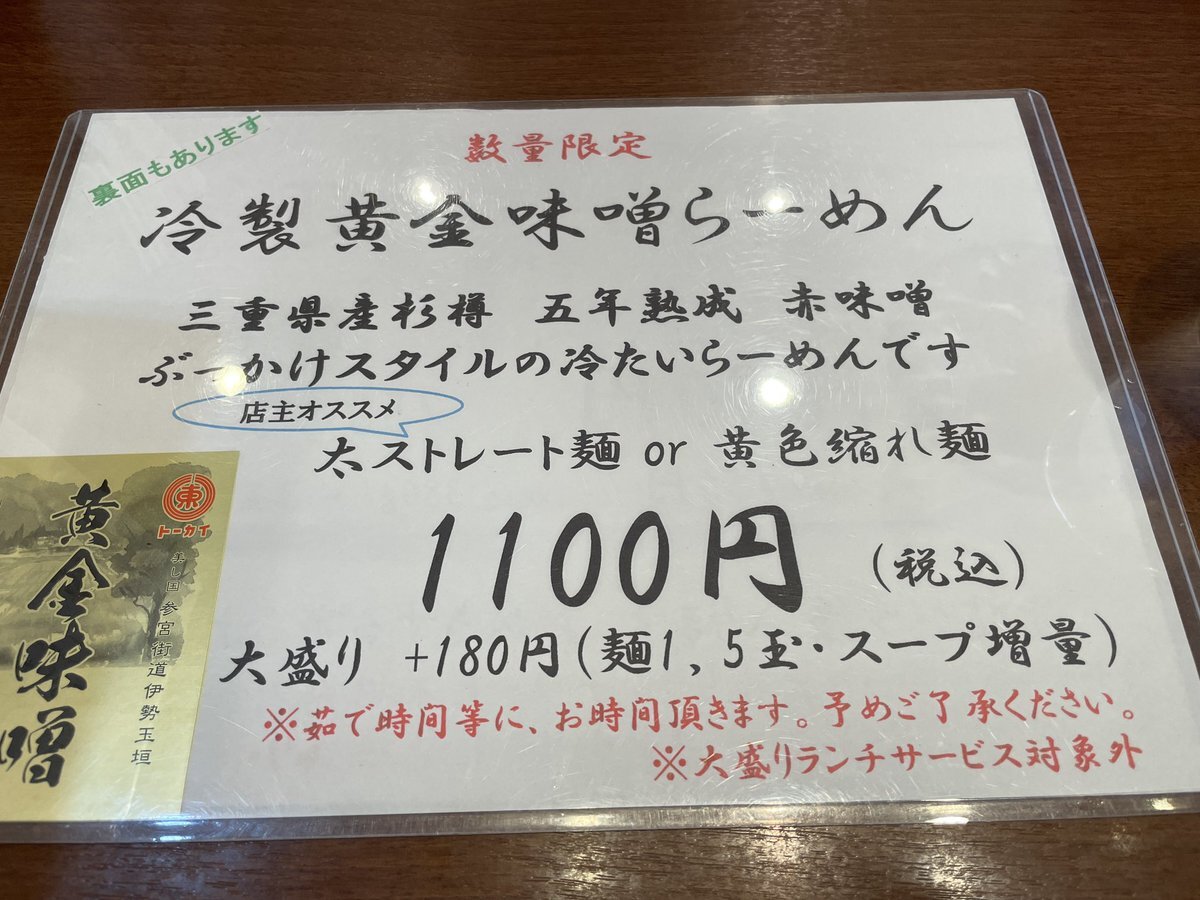 裏面もあります
数量限定
冷製黄金味噌らーめん
三重県産杉樽 五年熟成 赤味噌
ぶっかけスタイルの冷たいらーめんです
店主オススメ
太ストレート麺 or 黄色縮れ麺
1100円 (税込)
大盛り +180円(麺1,5玉・スープ増量)
※茹で時間等に、お時間頂きます。予めご了承ください。
※大盛りランチサービス対象外
東
トーカイ
美し国 参宮街道伊勢玉垣
黄金味噌